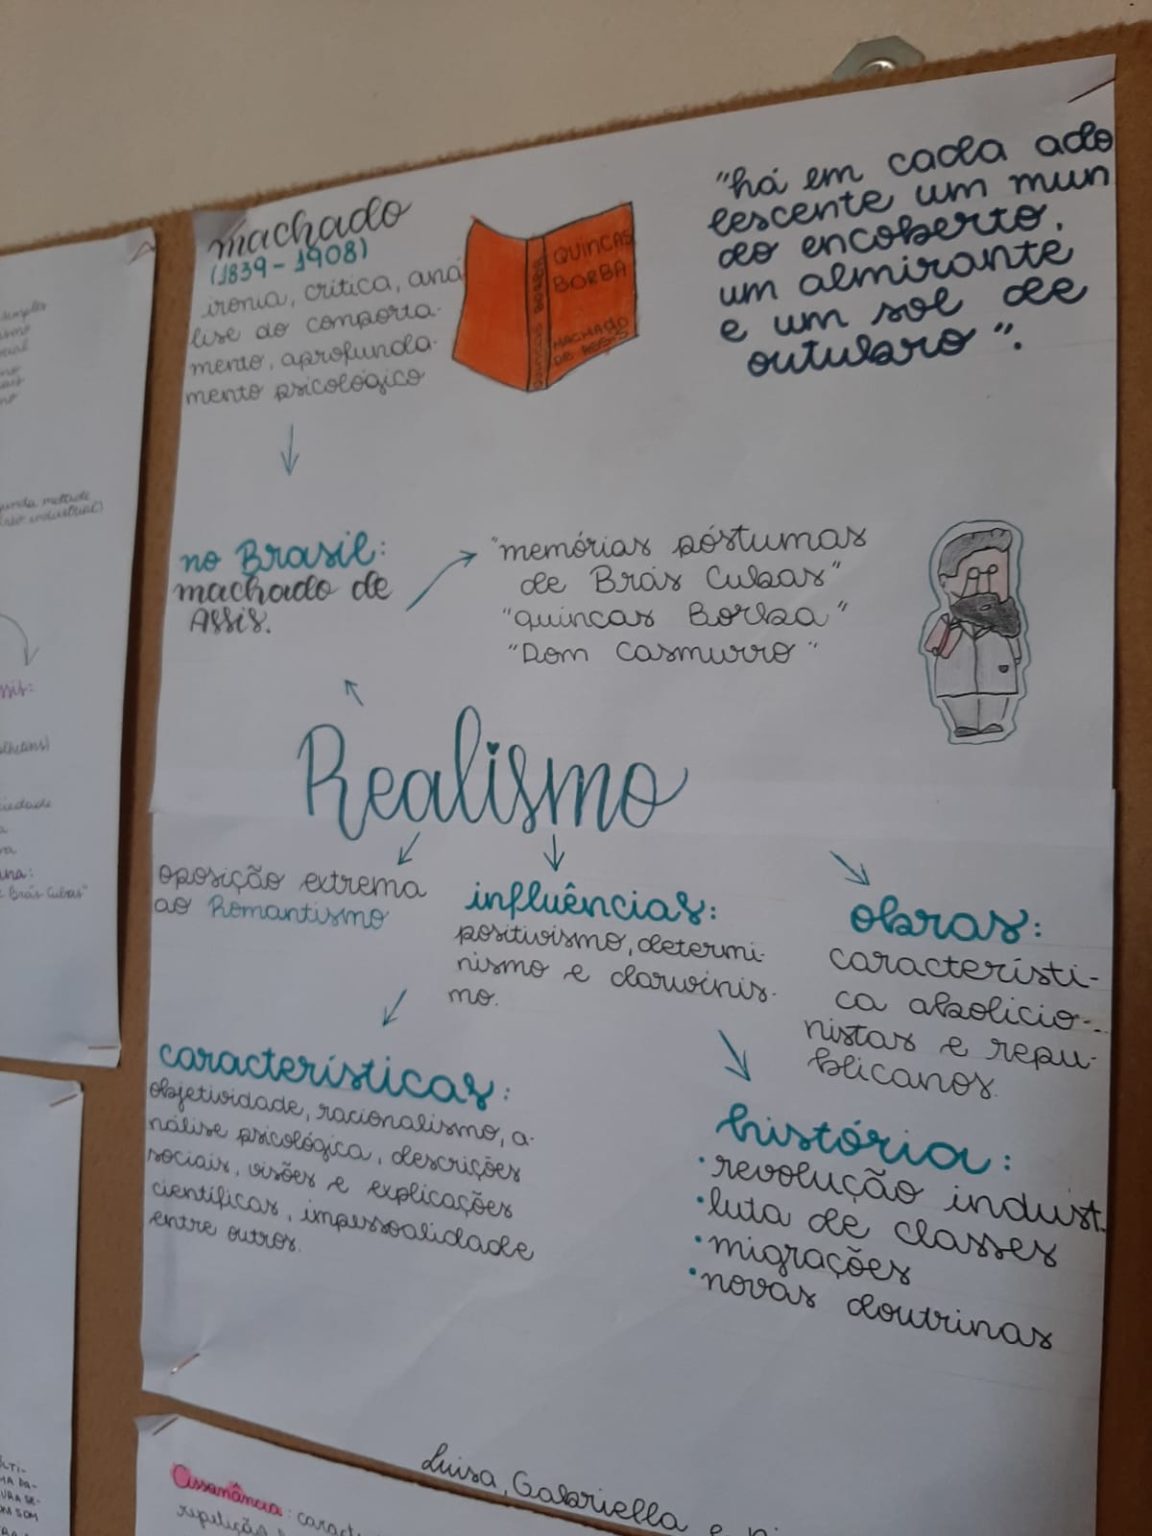 machado
(1839-1908)
ironia, crítica, aná
lise do comporta-
mento, aprofunda-
mento psicológico
QUINCAS BORBA
QUINCAS
BORBA
MACHADO
DE ASSIS
"há em cada ado
lescente um mun
do encoberto,
um almirante
e um sol de
outubro".
no Brasil:
machado de
Assis.
"memórias póstumas
de Brás Cubas"
"quincas Borba"
"Dom casmurro"
Realismo
oposição extrema
ao Romantismo
influências:
positivismo, determi-
nismo e darwinis-
mo.
obras:
característi-
ca abolicio-
nistas e repu-
blicanos.
características:
objetividade, racionalismo, a-
nálise psicológica, descrições
sociais, visões e explicações
científicas, impessoalidade
entre outros.
história:
•revolução indust.
•luta de classes
•migrações
•novas doutrinas
Luisa, Gabriella e
Brás Cubas"
Assonância:
repetição